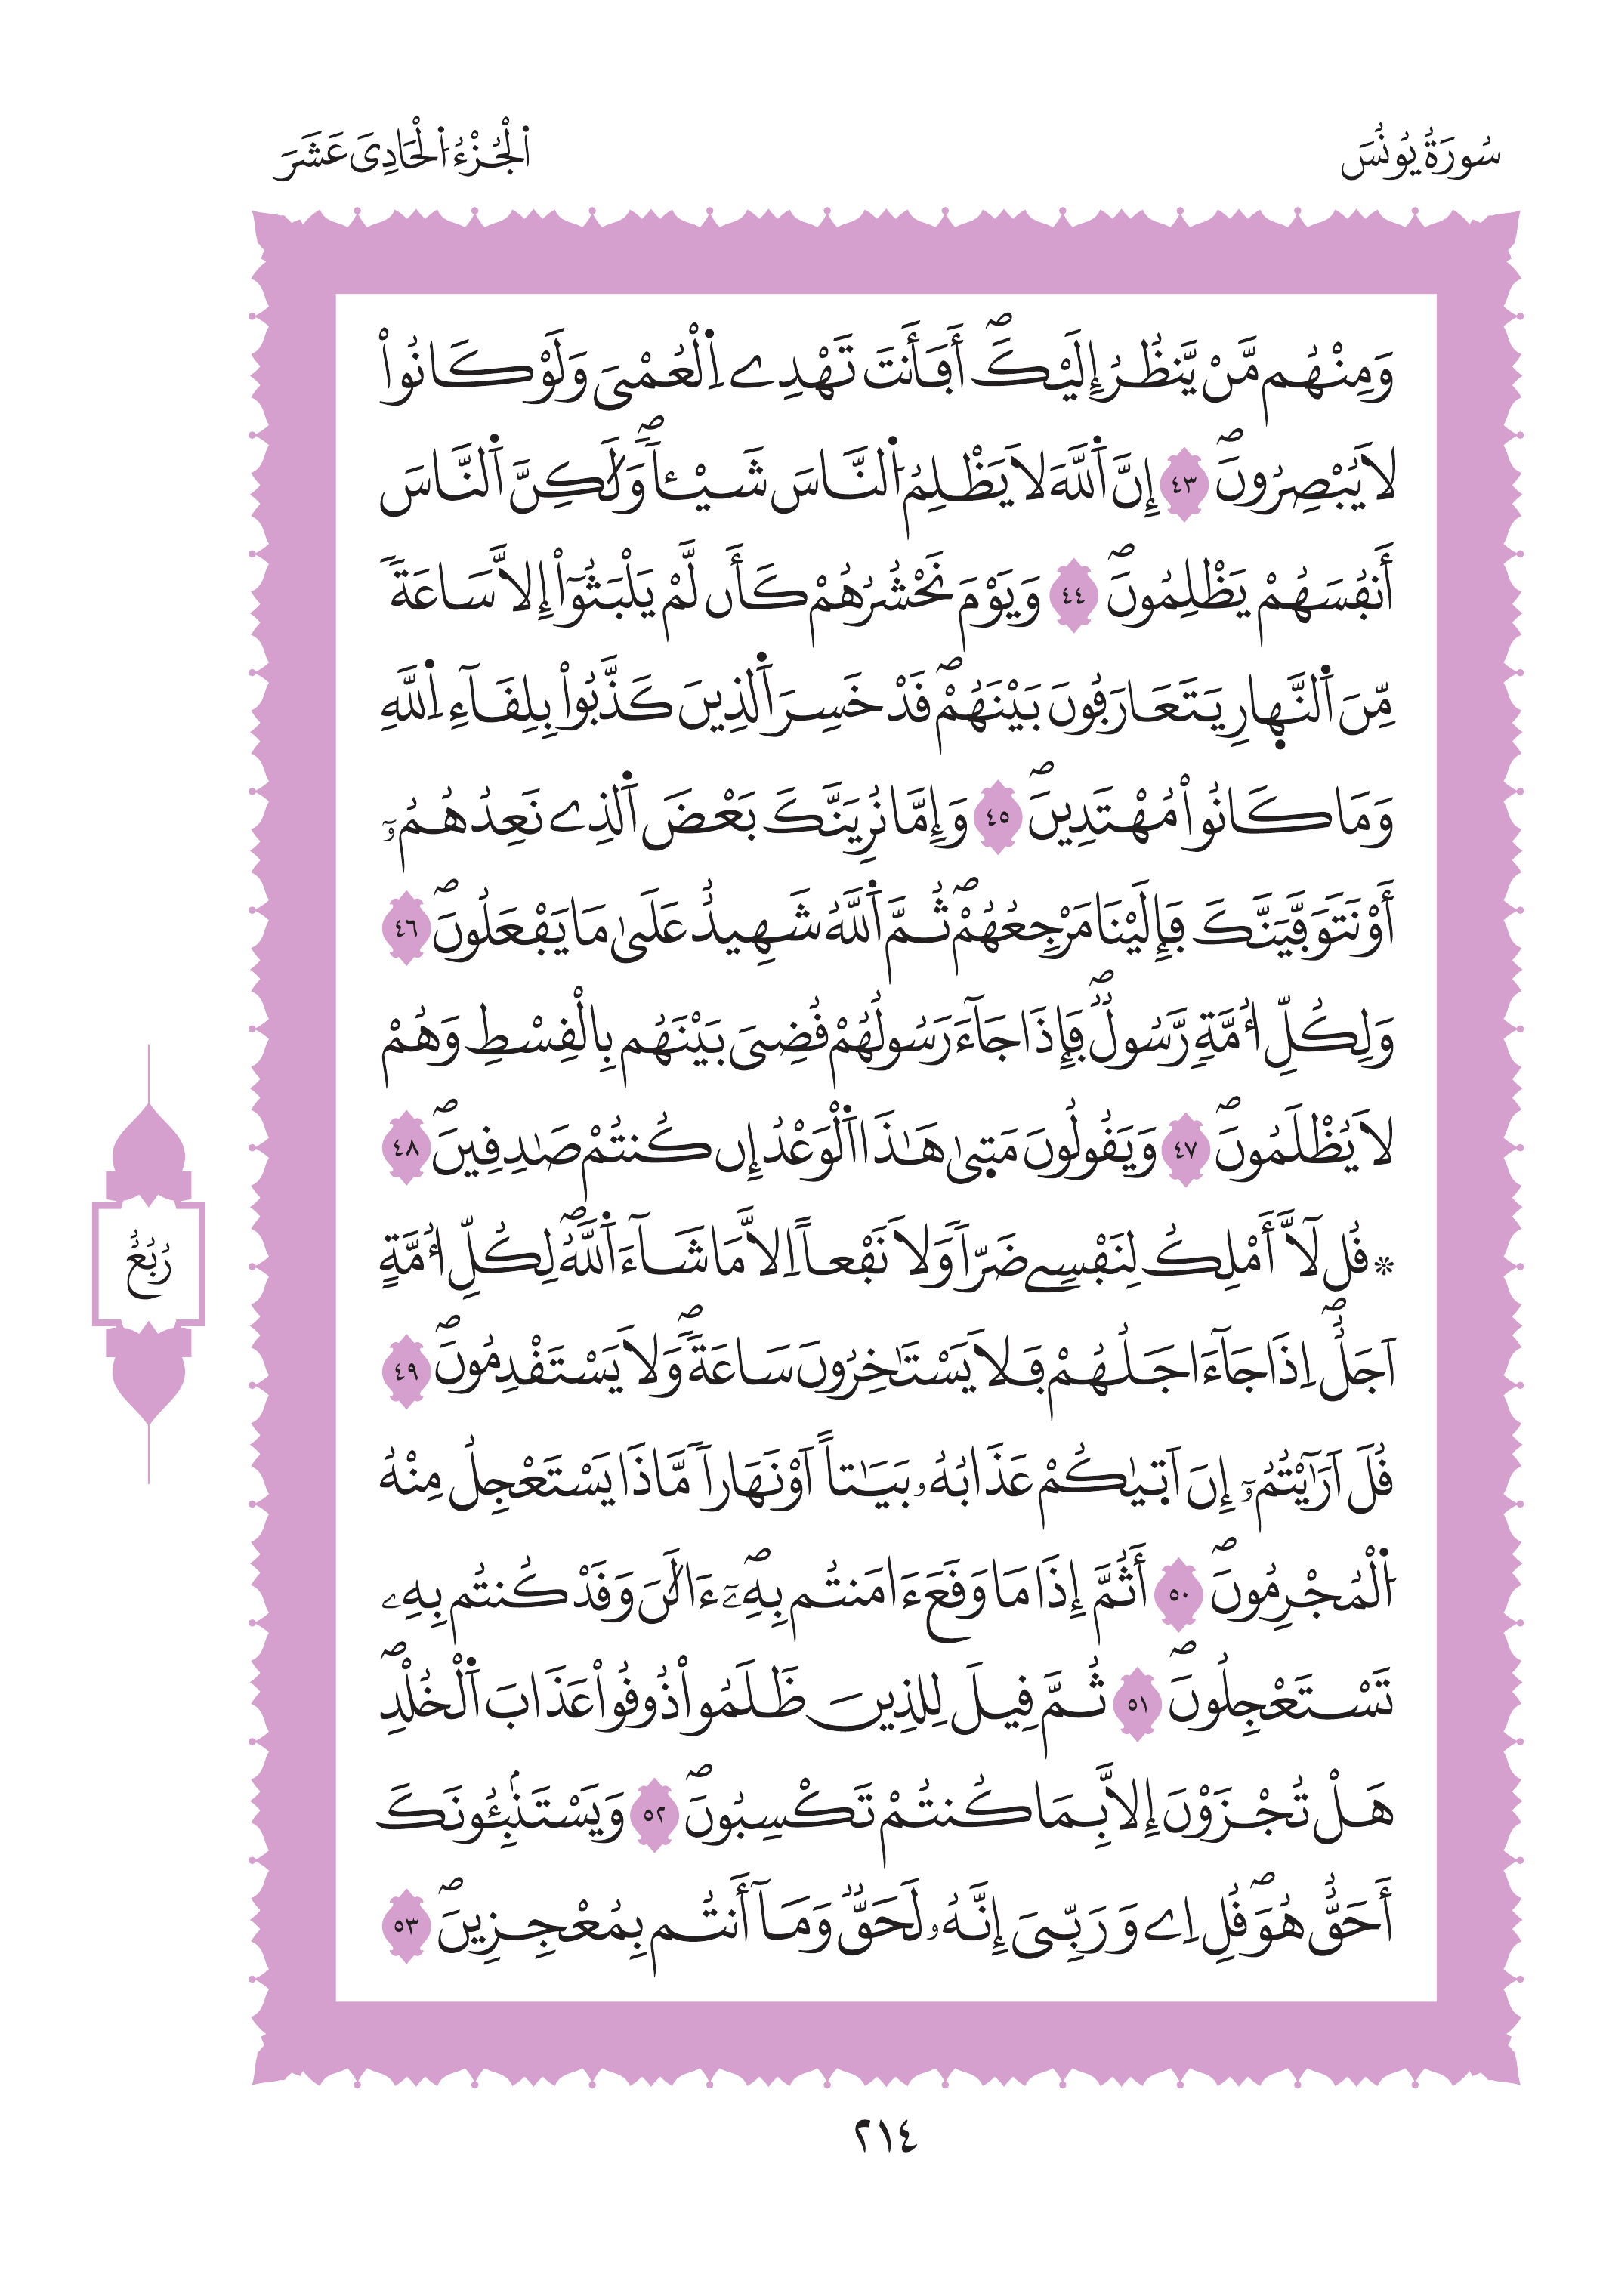 سُورَةُ يُونُسَ
اَ۬لْجُزْءُ اُ۬لْحَادِيَ عَشَرَ
وَمِنْهُم مَّنْ يَّنظُرُ إِلَيْكَۖ أَفَأَنتَ تَهْدِے اِ۬لْعُمْيَ وَلَوْ كَانُواْ
لَا يُبْصِرُونَۖ ٤٣ إِنَّ اَ۬للَّهَ لَا يَظْلِمُ اُ۬لنَّاسَ شَيْـٔاٗۖ وَلَٰكِنَّ اَ۬لنَّاسَ
أَنفُسَهُمْ يَظْلِمُونَۖ ٤٤ وَيَوْمَ نَحْشُرُهُمْ كَأَن لَّمْ يَلْبَثُوٓاْ إِلَّا سَاعَةٗ
مِّنَ اَ۬لنَّه۪ارِ يَتَعَارَفُونَ بَيْنَهُمْۖ قَدْ خَسِرَ اَ۬لذِينَ كَذَّبُواْ بِلِقَآءِ اِ۬للَّهِ
وَمَا كَانُواْ مُهْتَدِينَۖ ٤٥ وَإِمَّا نُرِيَنَّكَ بَعْضَ اَ۬لذِے نَعِدُهُمُۥٓ
أَوْ نَتَوَفَّيَنَّكَ فَإِلَيْنَا مَرْجِعُهُمْۖ ثُمَّ اَ۬للَّهُ شَهِيدٌ عَلَىٰ مَا يَفْعَلُونَۖ ٤٦
وَلِكُلِّ أُمَّةٖ رَّسُولٞۖ فَإِذَا جَآءَ رَسُولُهُمْ قُضِيَ بَيْنَهُم بِالْقِسْطِ وَهُمْ
لَا يُظْلَمُونَۖ ٤٧ وَيَقُولُونَ مَت۪يٰ هَٰذَا اَ۬لْوَعْدُ إِن كُنتُمْ صَٰدِقِينَۖ ٤٨
۞ قُل لَّآ أَمْلِكُ لِنَفْسِے ضَرّاٗ وَلَا نَفْعاً اِلَّا مَا شَآءَ اَ۬للَّهُۖ لِكُلِّ أُمَّةٍ
اَجَلٌۖ اِذَا جَآءَ اجَلُهُمْ فَلَا يَسْتَٰخِرُونَ سَاعَةٗۖ وَلَا يَسْتَقْدِمُونَۖ ٤٩
قُلَ اَرَٰٓيْتُمُۥٓ إِنَ اَت۪يٰكُمْ عَذَابُهُۥ بَيَٰتاً اَوْ نَهَاراٗ مَّاذَا يَسْتَعْجِلُ مِنْهُ
اُ۬لْمُجْرِمُونَۖ ٥٠ أَثُمَّ إِذَا مَا وَقَعَ ءَامَنتُم بِهِۦٓۖ ءَآلَٰنَ وَقَدْ كُنتُم بِهِۦ
تَسْتَعْجِلُونَۖ ٥١ ثُمَّ قِيلَ لِلذِينَ ظَلَمُواْ ذُوقُواْ عَذَابَ اَ۬لْخُلْدِۖ
هَلْ تُجْزَوْنَ إِلَّا بِمَا كُنتُمْ تَكْسِبُونَۖ ٥٢ وَيَسْتَنۢبِـُٔونَكَ
أَحَقٌّ هُوَۖ قُلِ اِے وَرَبِّيَ إِنَّهُۥ لَحَقّٞ وَمَآ أَنتُم بِمُعْجِزِينَۖ ٥٣
رُبُعُ
٢١٤